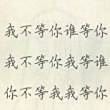 我不等你谁等你
我不等你谁等你
你不等我我等你